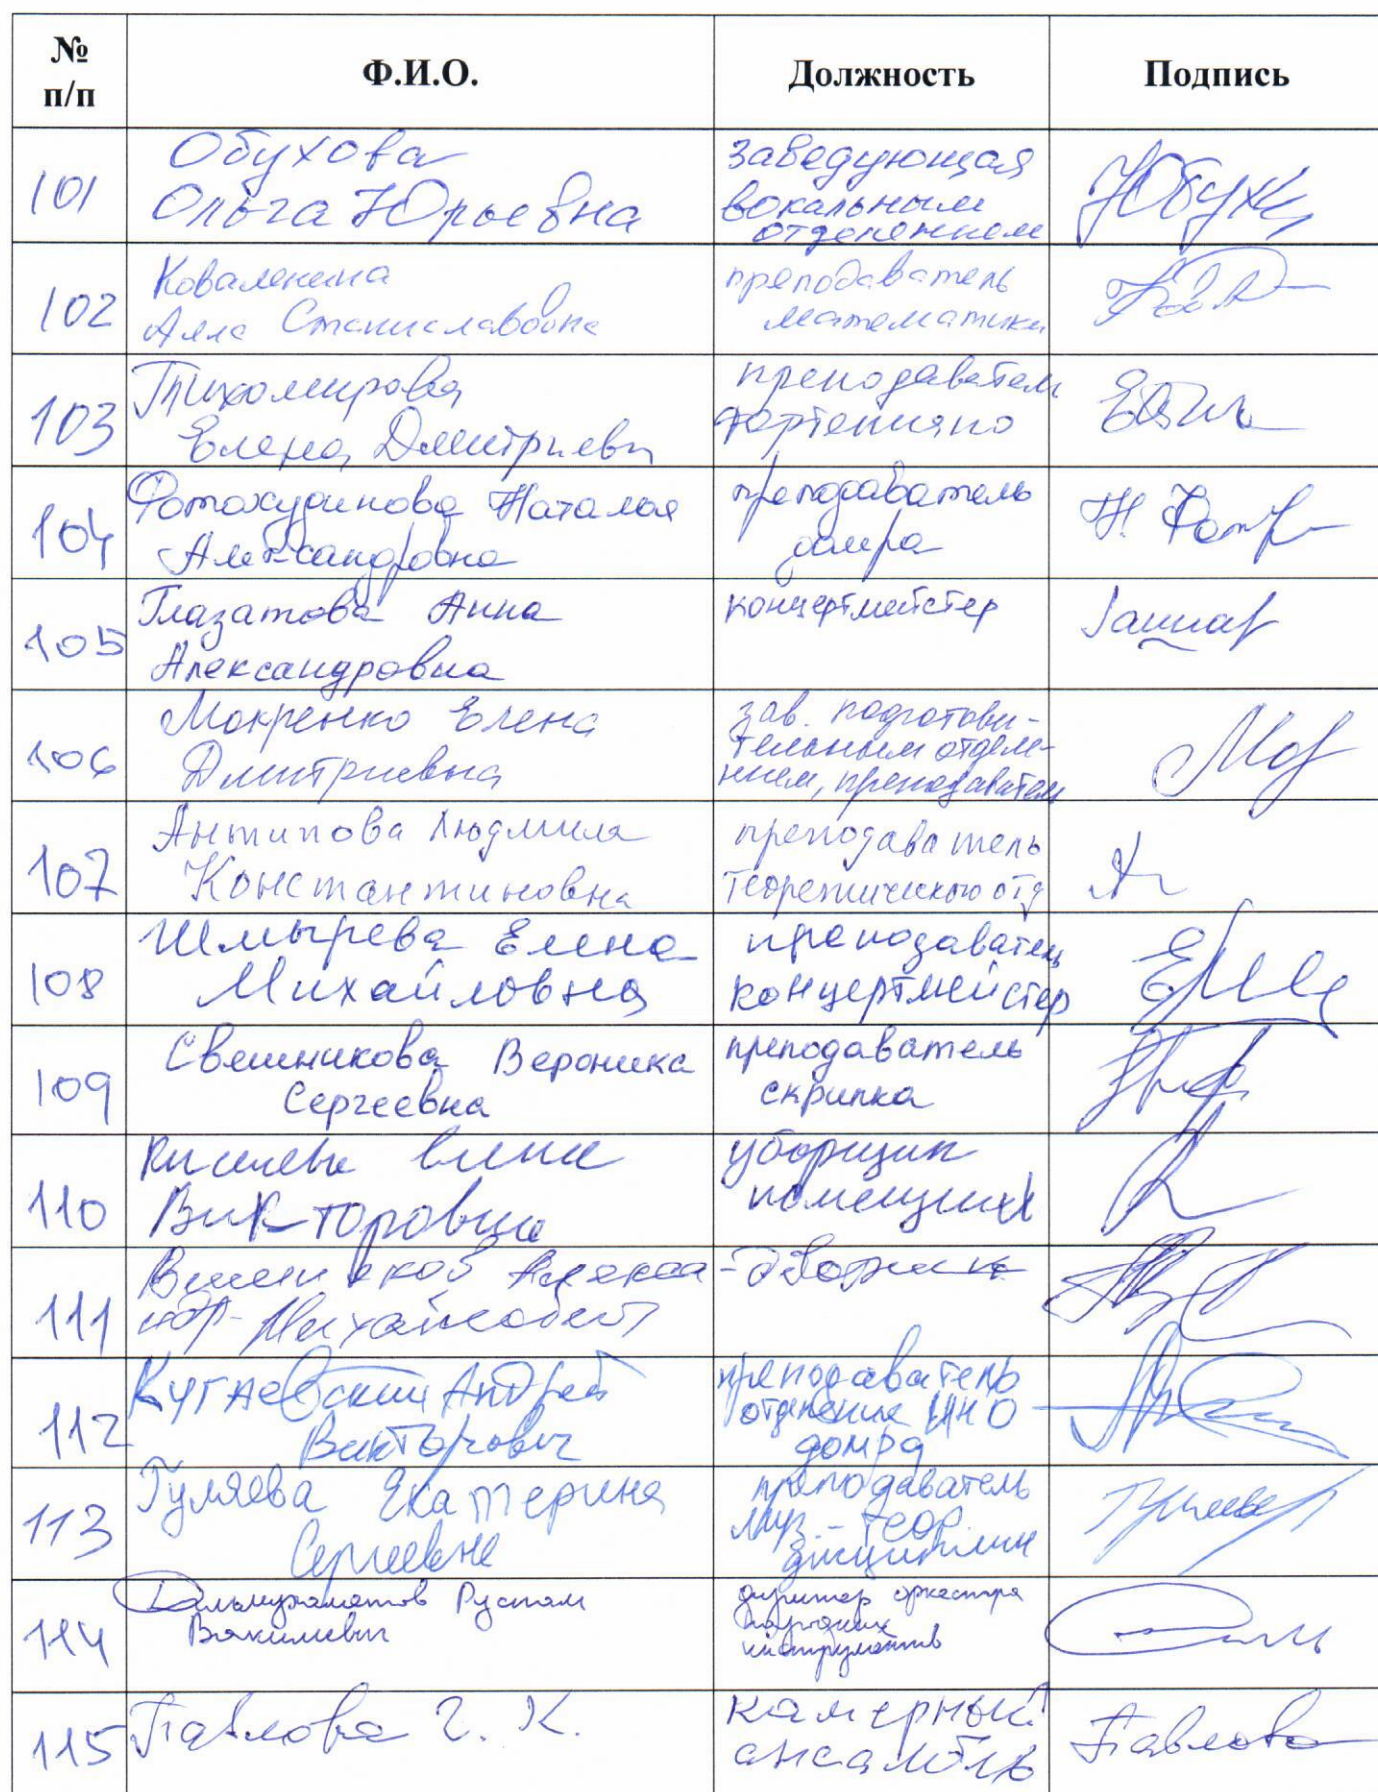 № п/п Ф.И.О. Должность Подпись
101
Обухова
Ольга Юрьевна
заведующая
вокальным
отделением
102
Коваленина
Алла Станиславовна
преподаватель
математики
103
Тихомирова
Елена Дмитриевн
преподаватель
фортепиано
104
Фотахудинова Наталья
Александровна
преподаватель
домра
105
Глазатова Анна
Александровна
концертмейстер
106
Мокренко Елена
Дмитриевна
зав. подготови-
тельным отделе-
нием, преподаватель
107
Антипова Людмила
Константиновна
преподаватель
теоретического отд
108
Шмырева Елена
Михайловна
преподаватель
концертмейстер
109
Свешникова Вероника
Сергеевна
преподаватель
скрипка
110
Викторовна
уборщик
111
Михайлович
- дворник
112
Кугаевский Андрей
Викторович
преподаватель
отделение ИНО
домра
113
Гуляева Екатерина
Сергеевна
преподаватель
муз. - теор.
дисциплин
114
Рустам
Вакилевич
оркестра
народных
инструментов
115
Павлова Г. К.
камерный
ансамбль
Павлова